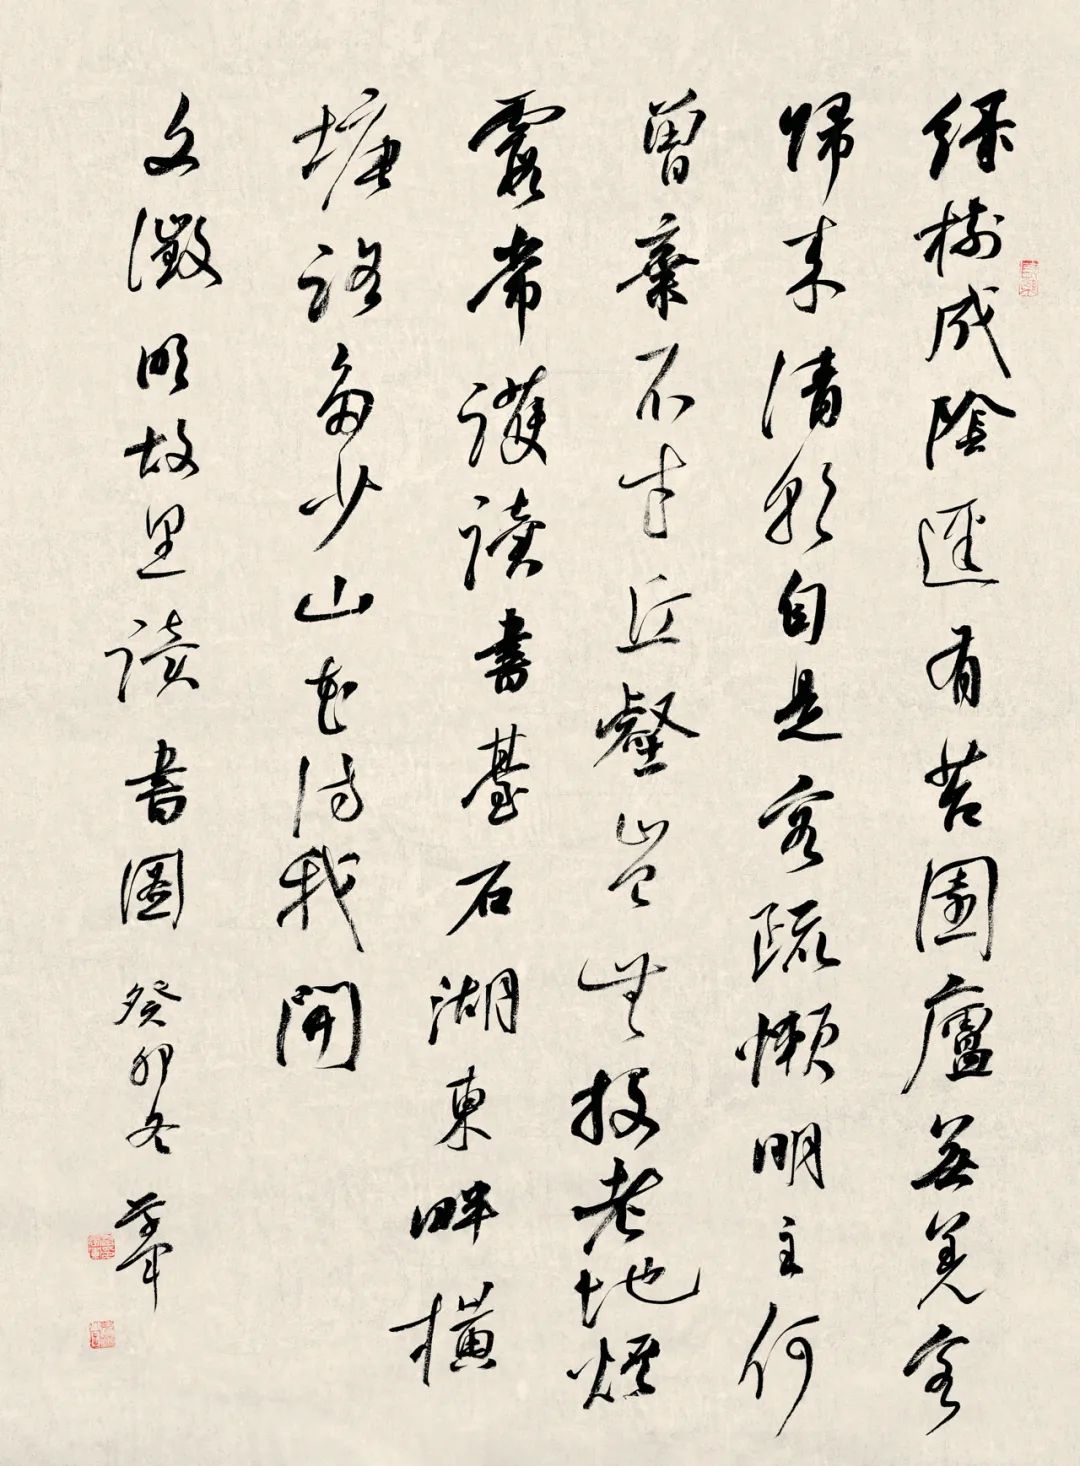 綠樹成陰逕有苔園廬無恙客
歸来清朝自是容疏懶明主何
曾棄不才丘壑豈無投老地煙
霞常護讀書臺石湖東畔橫
塘路多少山花待我開
文徵明故里讀書圖 癸卯冬